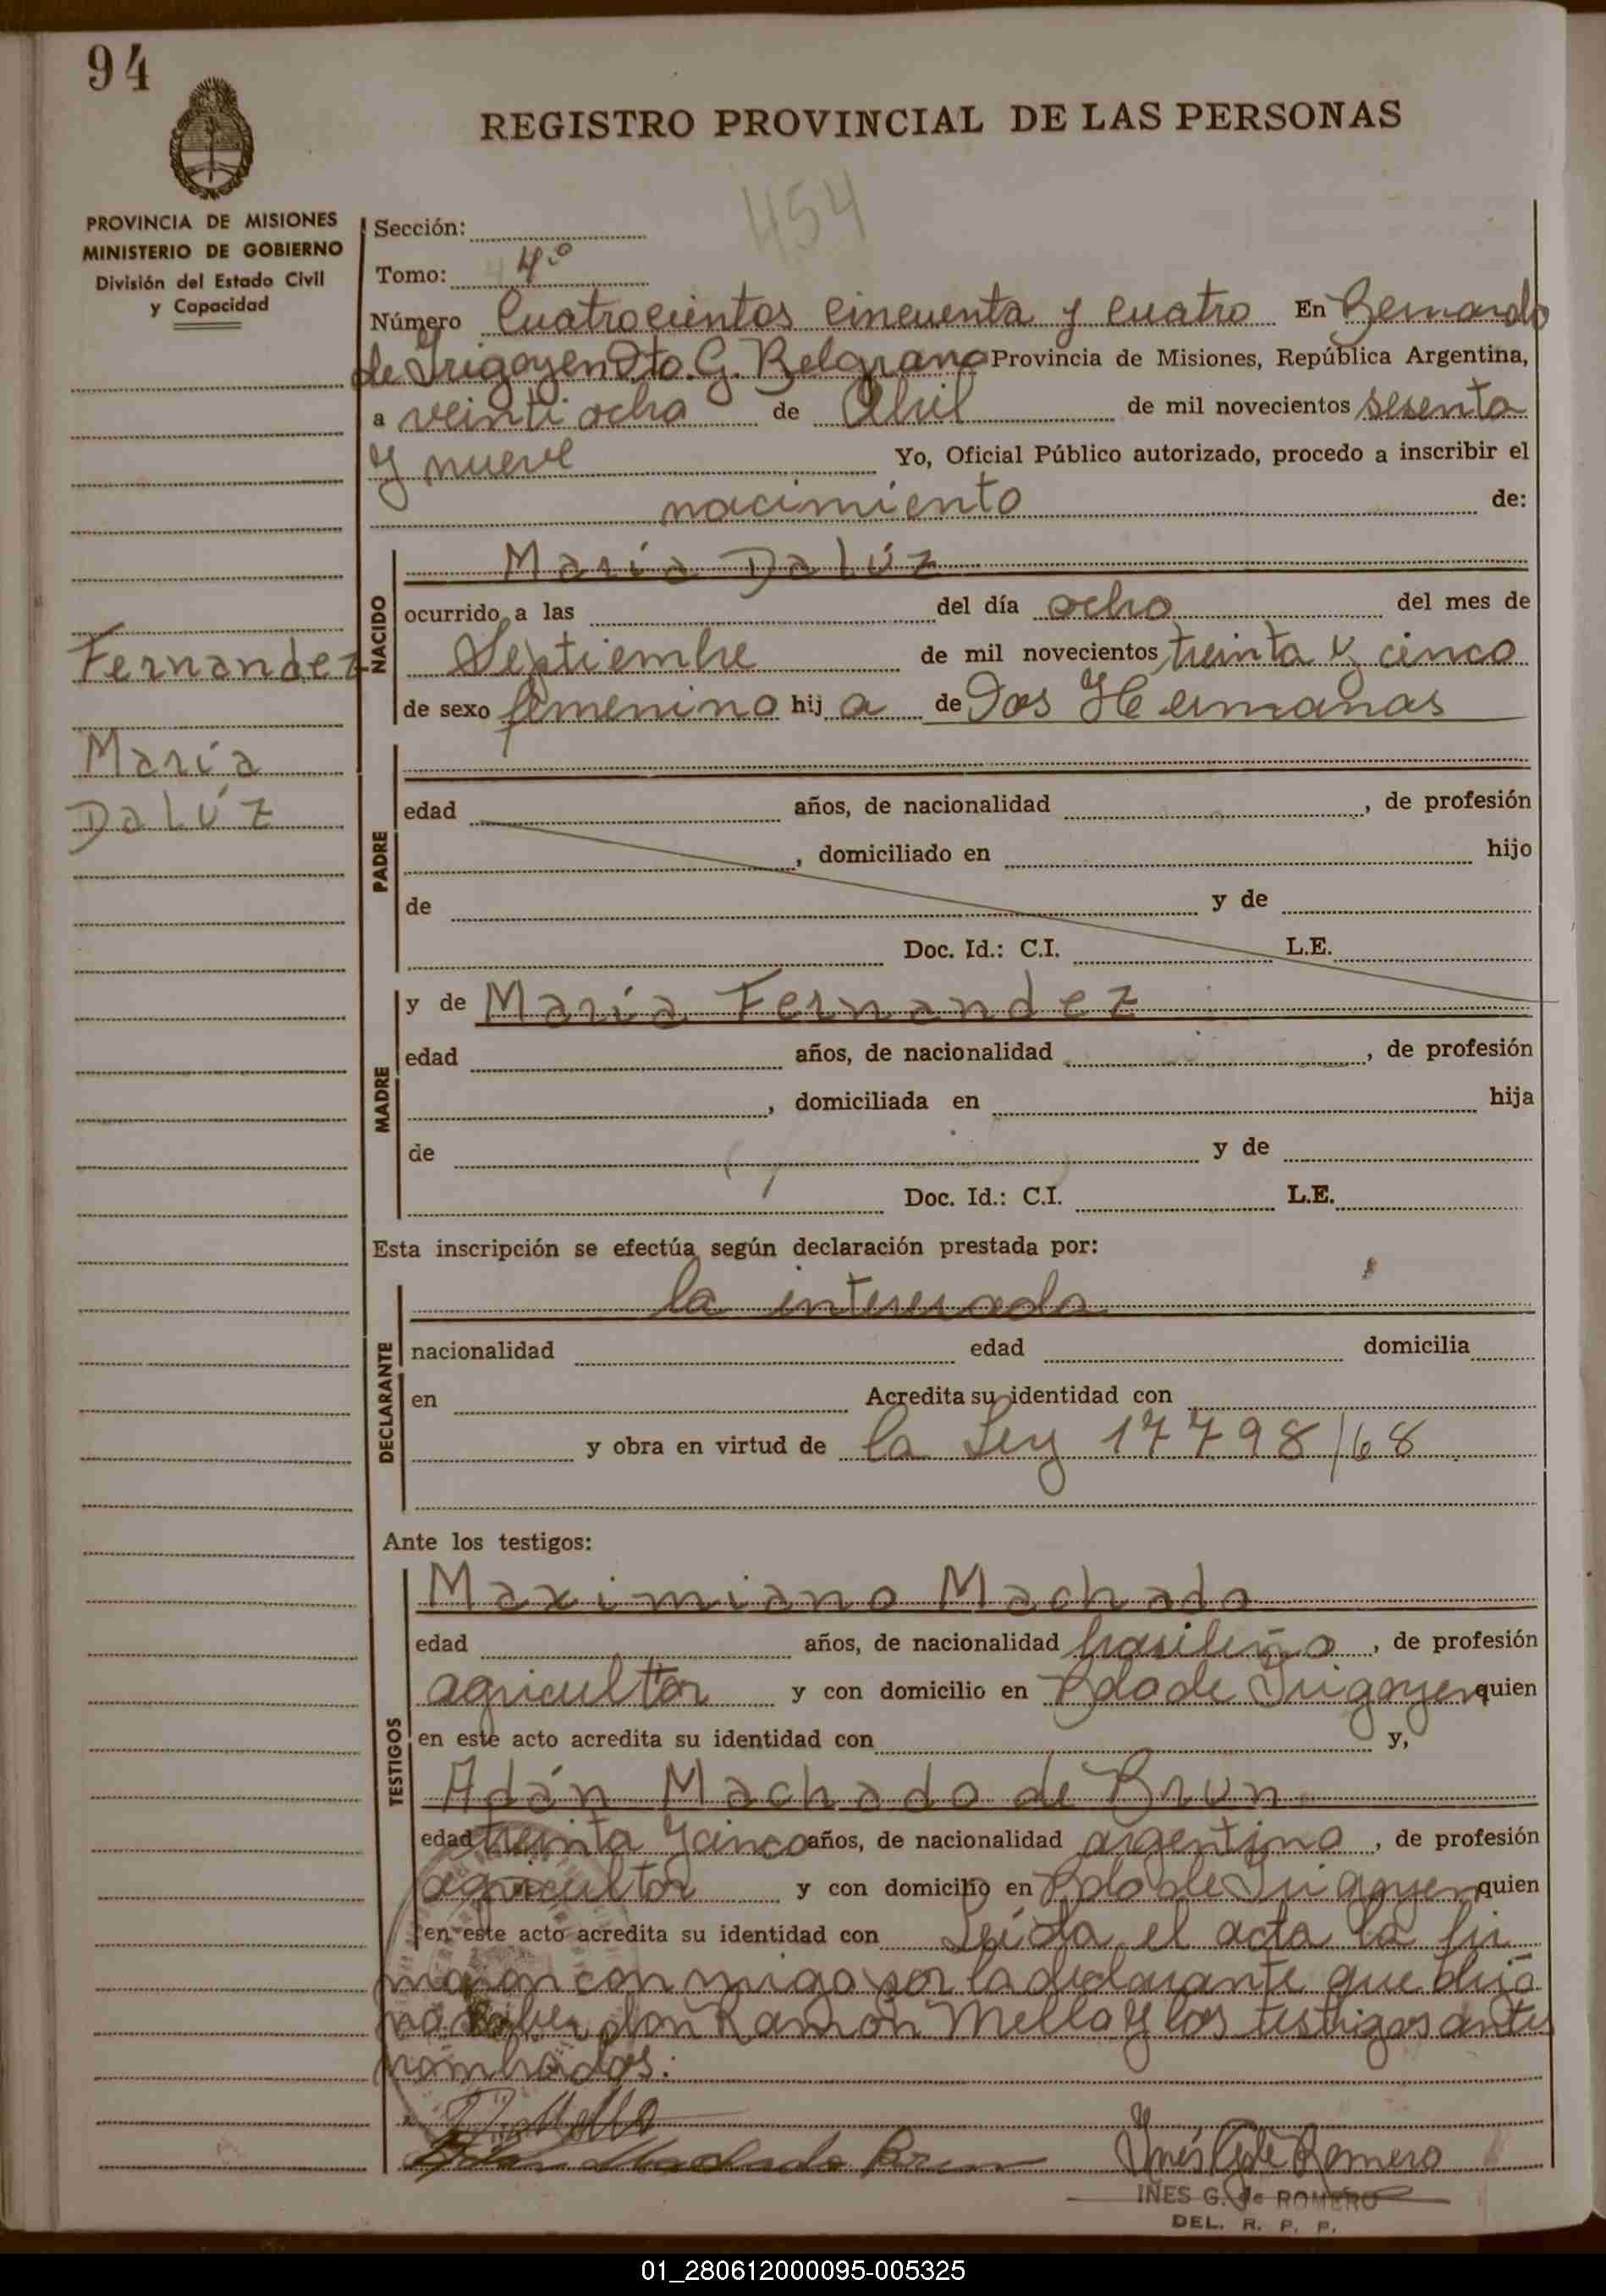 94
REGISTRO PROVINCIAL DE LAS PERSONAS
454
PROVINCIA DE MISIONES
MINISTERIO DE GOBIERNO
División del Estado Civil
y Capacidad
Sección:
Tomo: 4º
Número Cuatrocientos cincuenta y cuatro En Bernardo
de Irigoyen Dto. G. Belgrano Provincia de Misiones, República Argentina,
a veinti ocho de Abril de mil novecientos sesenta
y nueve Yo, Oficial Público autorizado, procedo a inscribir el
nacimiento de:
Fernandez
María
Da Lúz
NACIDO
María Da Lúz
ocurrido a las del día ocho del mes de
Septiembre de mil novecientos treinta y cinco
de sexo femenino hij a de Dos Hermanas
PADRE
edad años, de nacionalidad , de profesión
, domiciliado en hijo
de y de
Doc. Id.: C.I. L.E.
MADRE
y de María Fernandez
edad años, de nacionalidad , de profesión
, domiciliada en hija
de y de
Doc. Id.: C.I. L.E.
Esta inscripción se efectúa según declaración prestada por:
DECLARANTE
la interesada
nacionalidad edad domicilia
en Acredita su identidad con
y obra en virtud de la Ley 17798/68
Ante los testigos:
TESTIGOS
Maximiano Machado
edad años, de nacionalidad brasileño, de profesión
agricultor y con domicilio en Bdo de Irigoyen quien
en este acto acredita su identidad con y,
Adán Machado de Brun
edad treinta y cinco años, de nacionalidad argentino, de profesión
agricultor y con domicilio en Bdo de Irigoyen quien
en este acto acredita su identidad con Leída el acta la fir
maron conmigo por la declarante que dijo
no saber don Ramón Mello y los testigos antes
nombrados.
Adan Machado Brun Inés G. de Romero
INES G. de ROMERO
DEL. R. P. P.
01_280612000095-005325